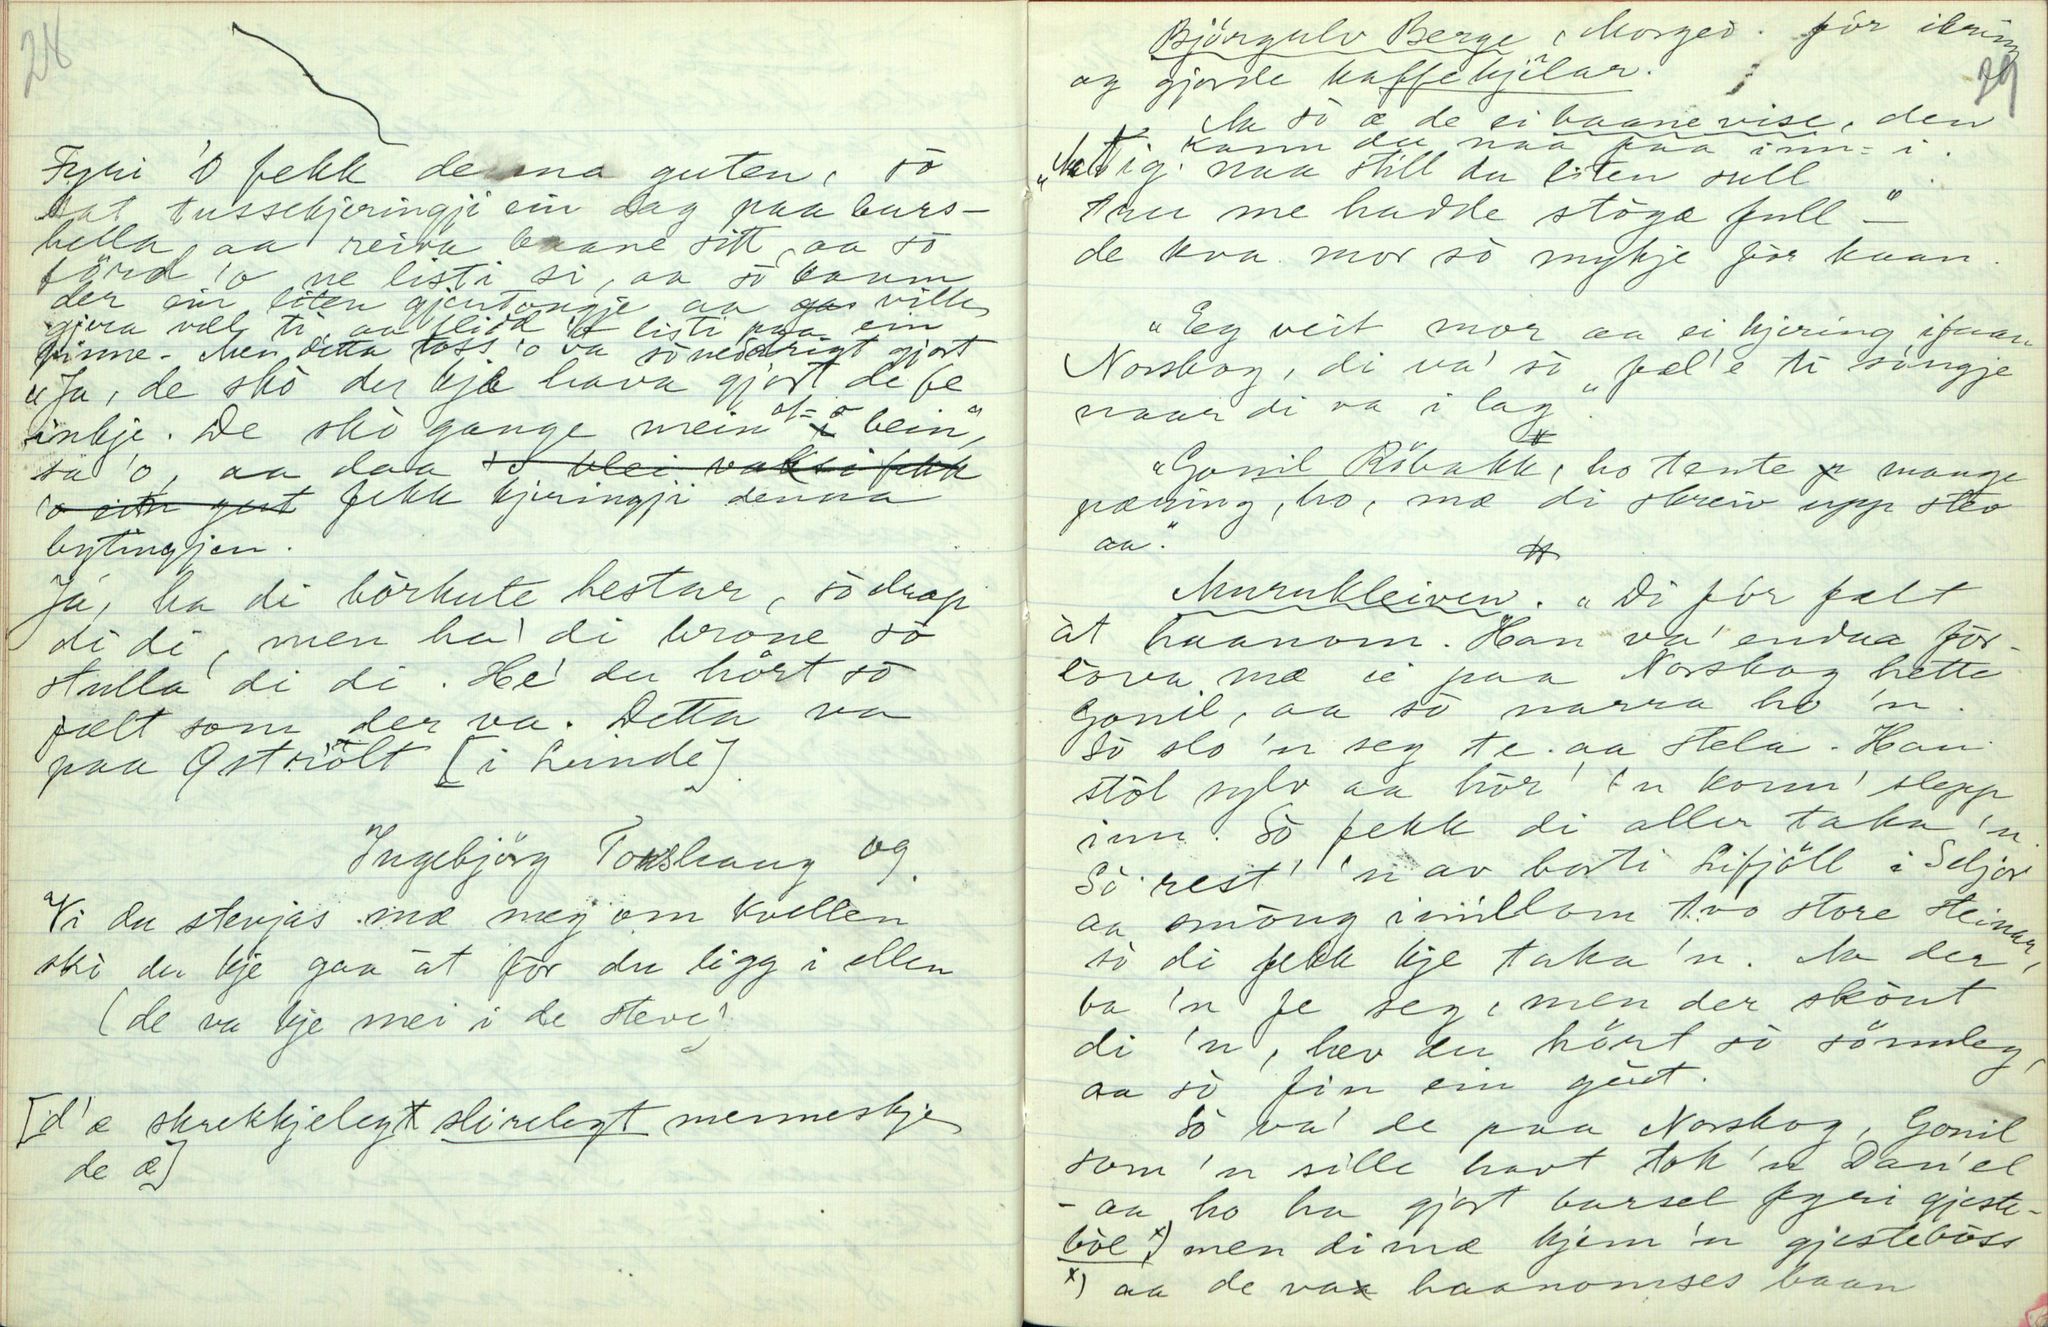 28
Fyri 'o fekk denna guten, sò
sat tussekjeringji ein dag paa bars-
hella, aa reiva baane sitt, aa so
förd 'o ne listi si, aa so kaam
der ein liten gjentongje aa gav ville
gjera væl ti, aa listi paa ein
pinne. Men ditta tòss 'o va so nedrigt gjort
"Ja, de skò du kje hava gjort de fe
inkje. De skò gange mein at i bein",
sa 'o, aa daa so blei vaksi fekk
'o ein gut fekk kjeringji denna
bytingjen.
Ja, ha di börkute hestar, sò drap
di di, men ha' di brone sò
stulla di di. He' du hört sò
fælt som der va. Detta va
paa Qströlt [i Lunde].
Ingebjörg Tonshaug og.
"Vi du stevjas mæ meg om kvellen
ski du kje gaa àt för du ligg i ellen
(de va kje mei i de steve)
[d'æ skrekkjelegt slirelegt menneskje
de æ]
29
Björgulv Berge, Morgei. fór ikring
og gjorde kaffekjélar.
Aa sò æ de ei baanevise, den
kann du naa paa inn-i.
"Tig naa still du liten sull
tru me hadde stògæ full -"
de kva mor sò mykje för kaan.
"Eg veit mor aa ei kjering ifraa
Norskog, di va' sò fæl'e ti sòngje
naar di va i lag".
"Gonil Röbakk, ho tente mange
pæning, ho, mæ di skreiv upp stev
aa."
Murukleiven. "Di fór fælt
àt haanom. Han va' endaa för-
lova mæ ei paa Norskog hette
Gonil, aa sò narra ho 'n.
Sò slo 'n seg te aa stela. Han
stòl sylv aa hòr' 'n konn' slepp
inn. Sò fekk di aller taka 'n.
Sò rest' 'n av borti Lifjöll i Seljor
aa smòug imillom tvo store steinar,
sò di fekk kje taka 'n. Aa der
ba 'n fe seg, men der skònt
di 'n, hev du hört sò sömeleg,
aa sò fin ein gùt.
Sò va' de paa Norskog, Gonil
som 'n sille havt tok 'n Dan'el
- aa ho ha gjort barsel fyri gjeste-
bòe x) men di mæ kjem 'n gjestebòss
x) aa de va haanomses baan